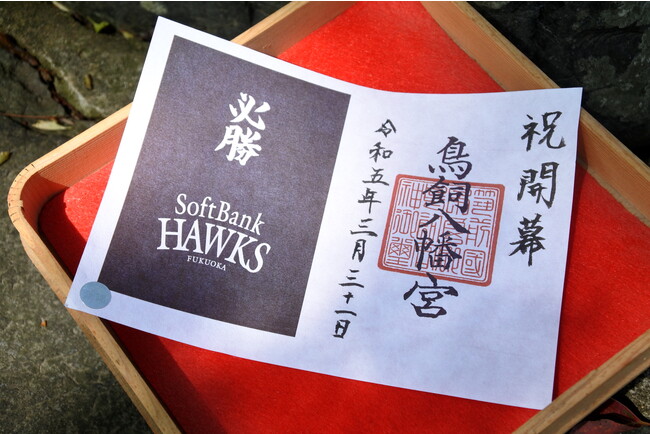 祝開幕
鳥飼八幡宮
令和五年三月三十一日
必勝
SoftBank
HAWKS
FUKUOKA